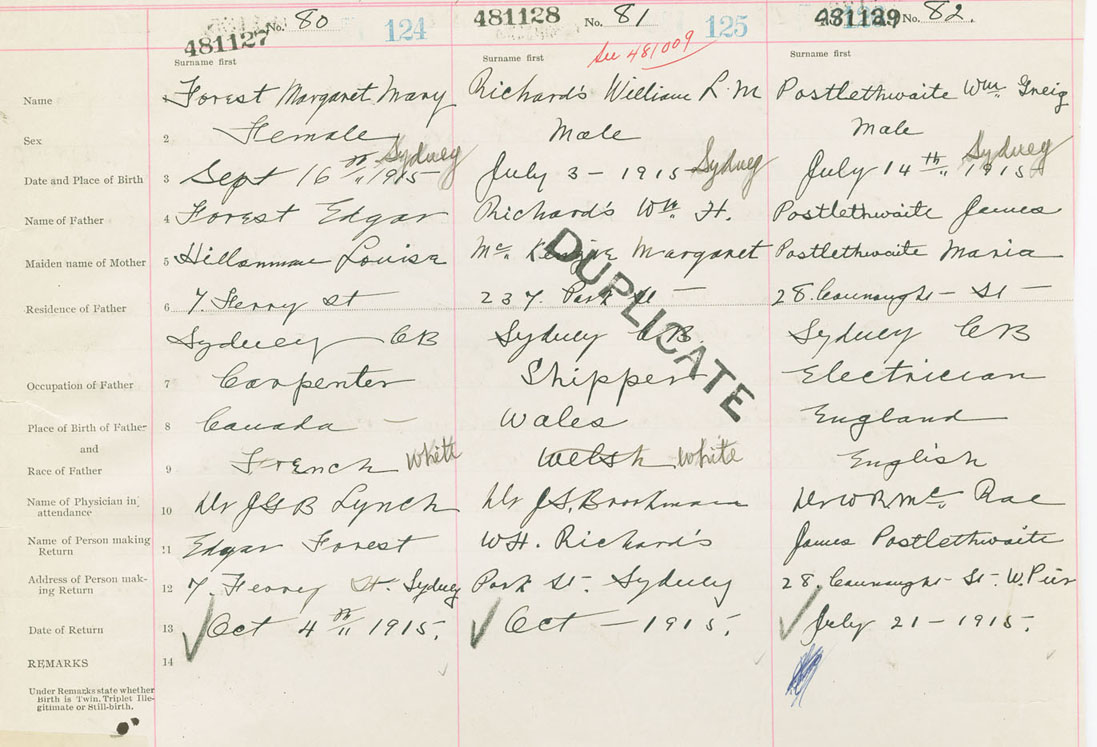 481127 No. 80 124
481128 No. 81 125
481129 No. 82.
See 481009
Surname first Surname first Surname first
Name Forest Margaret Mary Richard's William L. M Postlethwaite Wm Greig
Sex 2 Female Male Male
Date and Place of Birth 3 Sept 16 th 1915 Sydney July 3 - 1915 - Sydney July 14 th 1915 Sydney
Name of Father 4 Forest Edgar Richard's Wm H. Postlethwaite James
Maiden name of Mother 5 Louisa Mc Margaret Postlethwaite Maria
Residence of Father 6 7. Ferry St 237. Park St - 28. Connaught - St -
Sydney CB Sydney CB. Sydney CB
Occupation of Father 7 Carpenter Shipper Electrician
Place of Birth of Father 8 Canada - Wales England
and
Race of Father 9 French White Welsh White English
Name of Physician in attendance 10 Dr J G B Lynch Dr J.G. Dr W R Mc Rae
Name of Person making Return 11 Edgar Forest W H. Richard's James Postlethwaite
Address of Person making Return 12 7. Ferry St. Sydney Park St - Sydney 28. Connaught - St - W. Pier
Date of Return 13 Oct 4 th 1915. Oct - 1915. July 21 - 1915.
REMARKS 14
Under Remarks state whether
Birth is Twin, Triplet Ille-
gitimate or Still-birth.
DUPLICATE